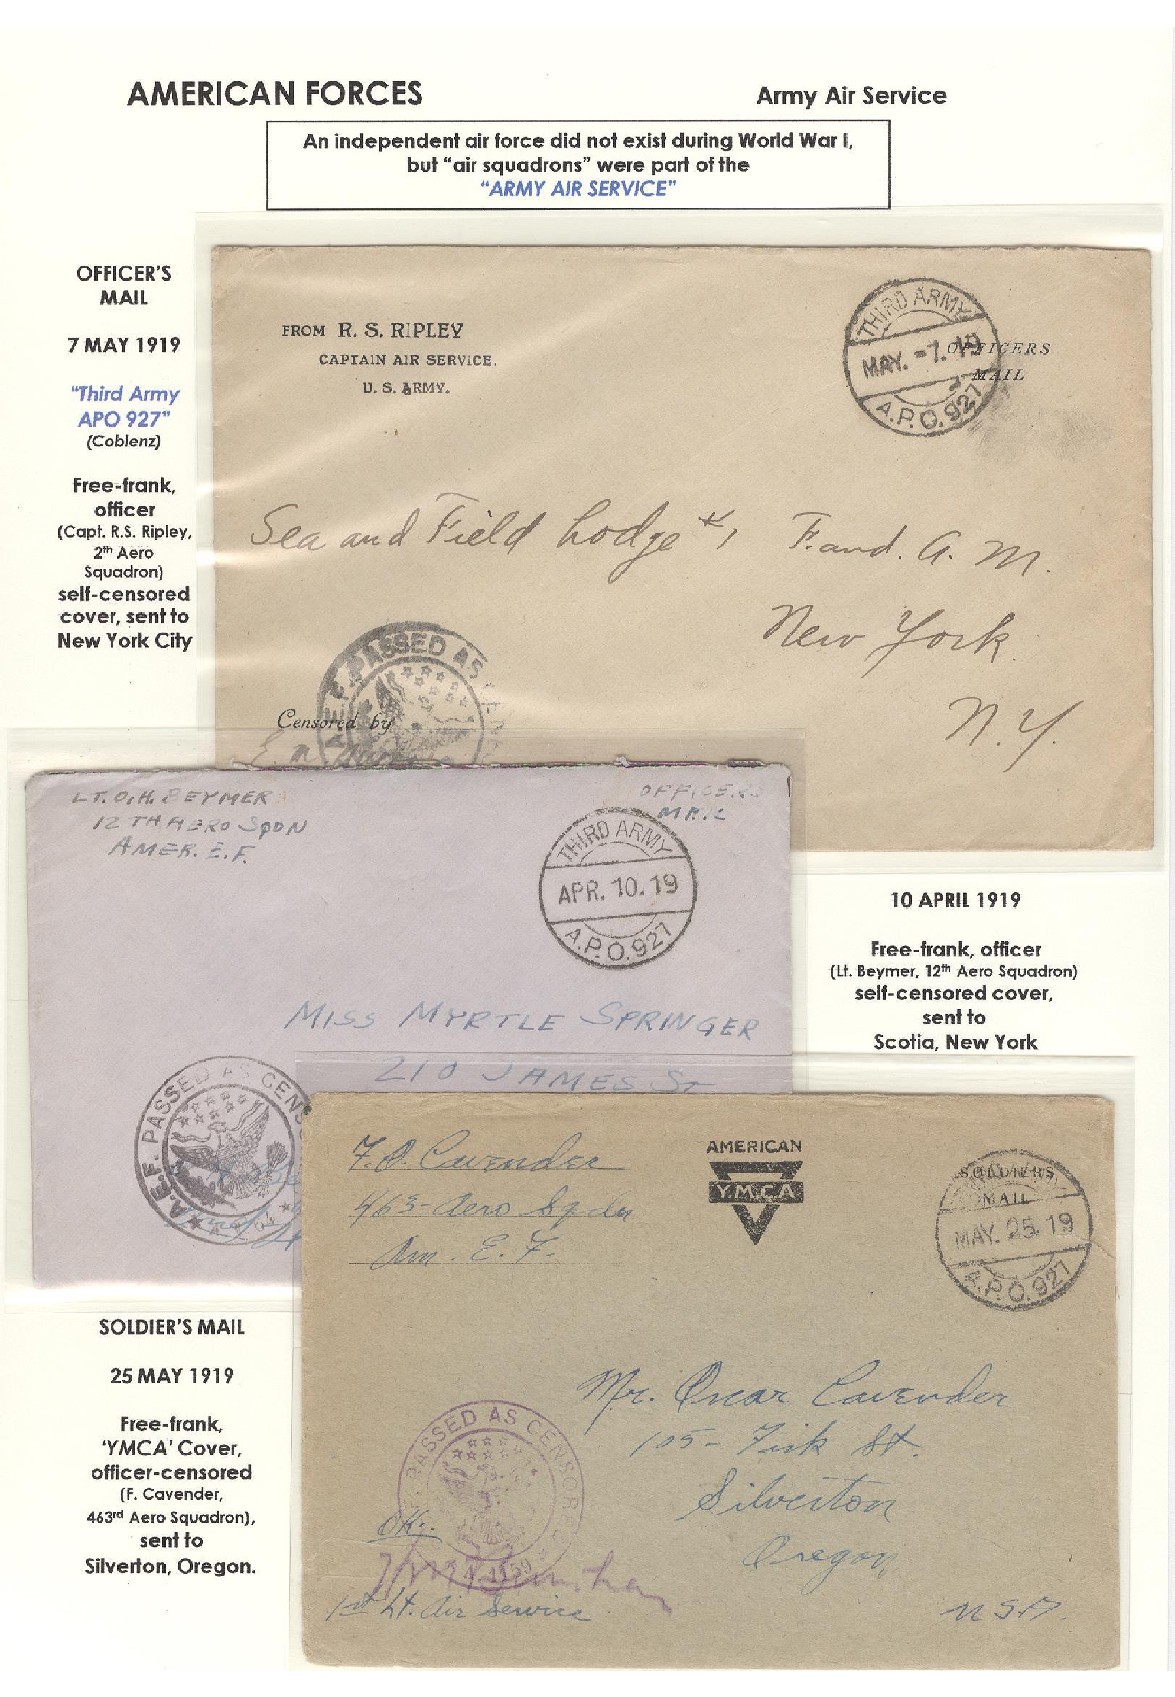 AMERICAN FORCES
Army Air Service
An independent air force did not exist during World War I,
but “air squadrons” were part of the
“ARMY AIR SERVICE”
OFFICER’S
MAIL
7 MAY 1919
“Third Army
APO 927”
(Coblenz)
Free-frank,
officer
(Capt. R.S. Ripley,
2th Aero
Squadron)
self-censored
cover, sent to
New York City
FROM R. S. RIPLEY
CAPTAIN AIR SERVICE.
U. S. ARMY.
THIRD ARMY
MAY. -7. 19
A.P.O. 927
OFFICERS
MAIL
Sea and Field Lodge #1 F. and. A. M.
New York
N. Y.
A.E.F. PASSED AS
Censored by
LT. O. H. BEYMER
12 TH AERO SQDN
AMER. E. F.
OFFICERS
MAIL
THIRD ARMY
APR. 10. 19
A.P.O. 927
MISS MYRTLE SPRINGER
210 JAMES ST
A.E.F. PASSED AS CENS
10 APRIL 1919
Free-frank, officer
(Lt. Beymer, 12th Aero Squadron)
self-censored cover,
sent to
Scotia, New York
SOLDIER’S MAIL
25 MAY 1919
Free-frank,
‘YMCA’ Cover,
officer-censored
(F. Cavender,
463rd Aero Squadron),
sent to
Silverton, Oregon.
F. O. Cavender
463- Aero Sqdn
Am. E. F.
AMERICAN
Y.M.C.A
SOLDIERS
MAIL
MAY. 25. 19
A.P.O. 927
Mr. Oscar Cavender
105- Fisk St.
Silverton
Oregon
USA.
PASSED AS CENSOR
OK.
1st Lt. Air Service